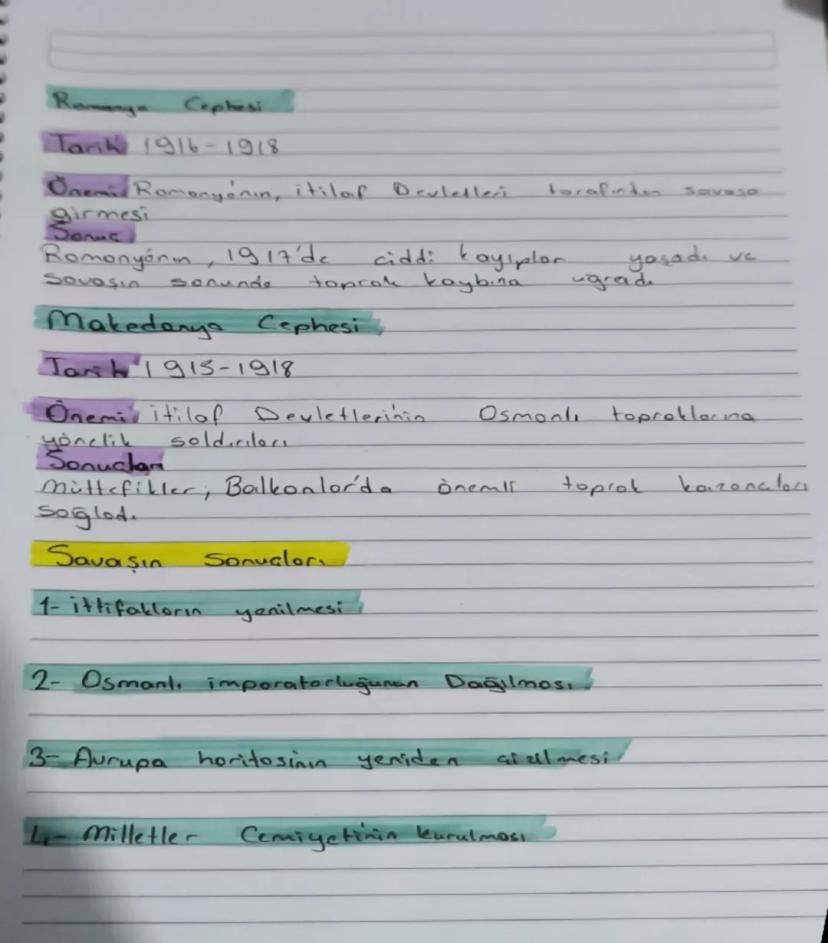 Romanya Cephesi
Tarih 1916-1918
Önemi Romanya'nın, itilaf Devletleri tarafından savaşa
girmesi
Sonuç
Romanya'nın, 1917'de ciddi kayıplar yaşadı ve
savaşın sonunda toprak kaybına uğradı
Makedonya Cephesi
Tarih 1915-1918
Önemi itilaf Devletleri'nin Osmanlı topraklarına
yönelik saldırıları
Sonuçları
Müttefikler, Balkanlar'da önemli toprak kazançları
sağladı.
Savaşın Sonuçları
1- ittifakların yenilmesi
2- Osmanlı imparatorluğunun Dağılması
3- Avrupa haritasının yeniden çizilmesi
4- Milletler Cemiyeti'nin kurulması